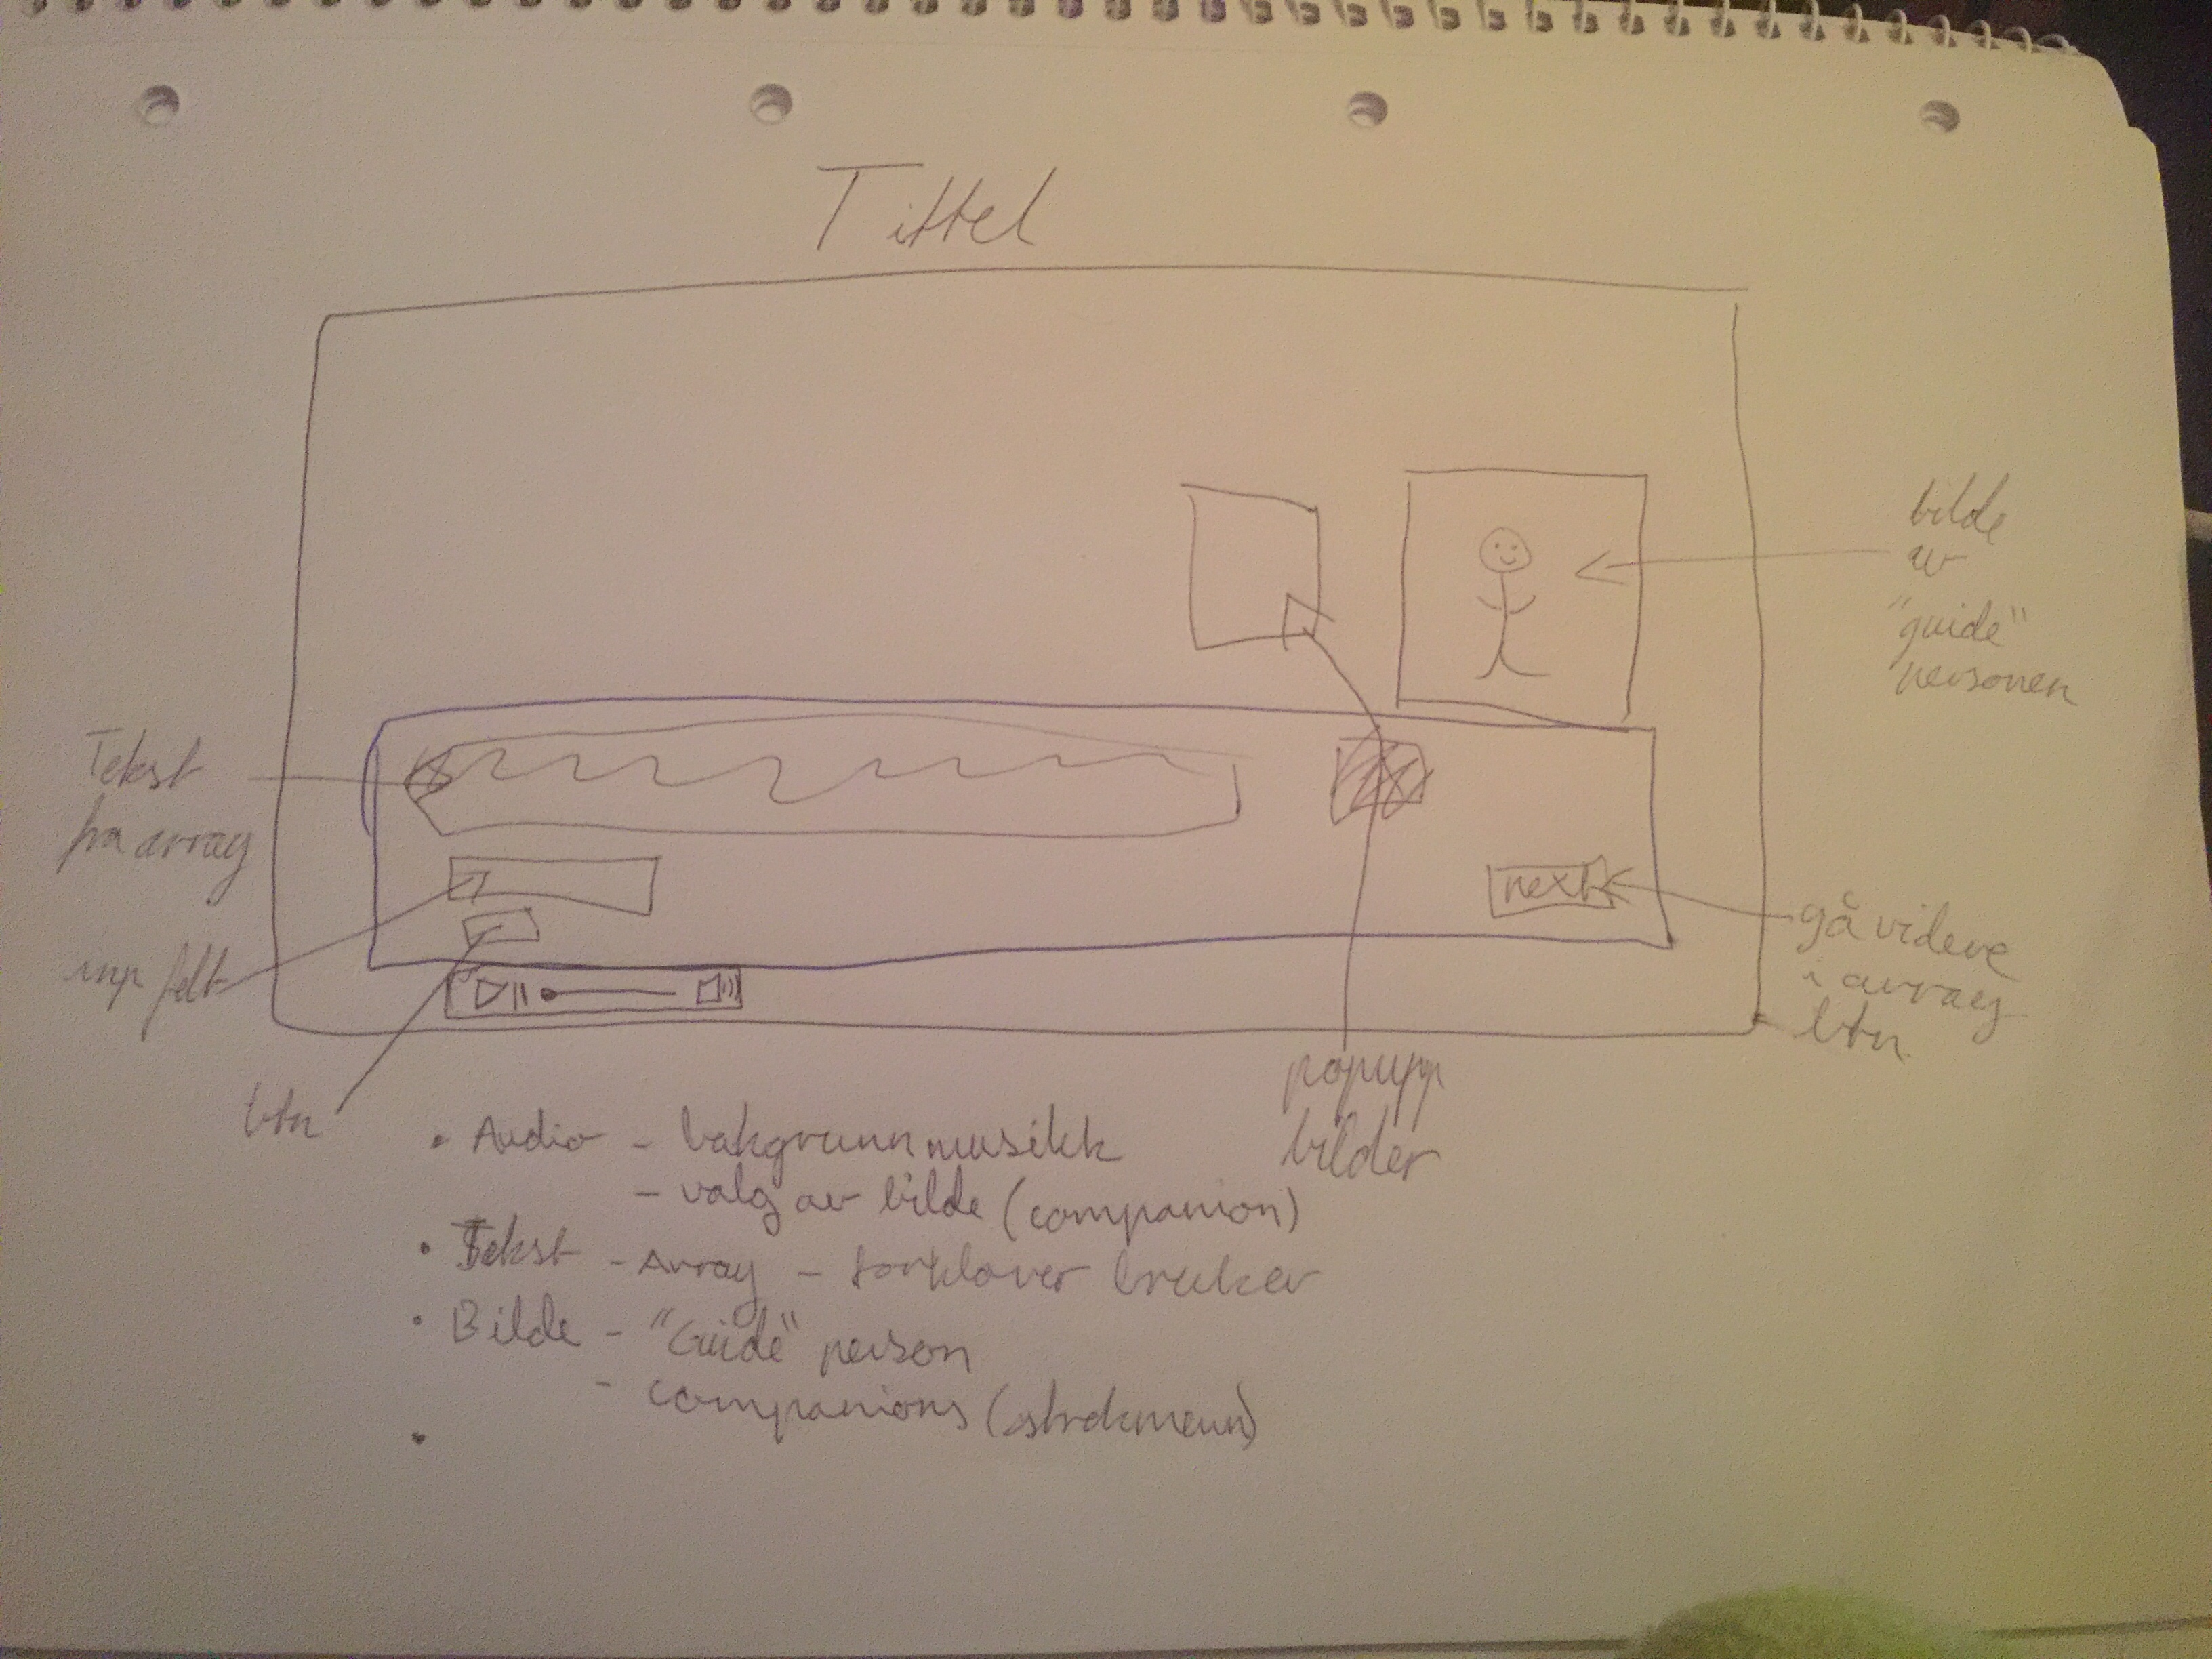 Tittel
bilde
av
"guide"
personen
Tekst
fra array
next
gå videre
i array
btn
inp felt
btn
popupp
bilder
• Audio - bakgrunnmusikk
- valg av bilde (companion)
• Tekst - Array - forklarer bruker
• Bilde - "Guide" person
- companions (strekmenn)
•